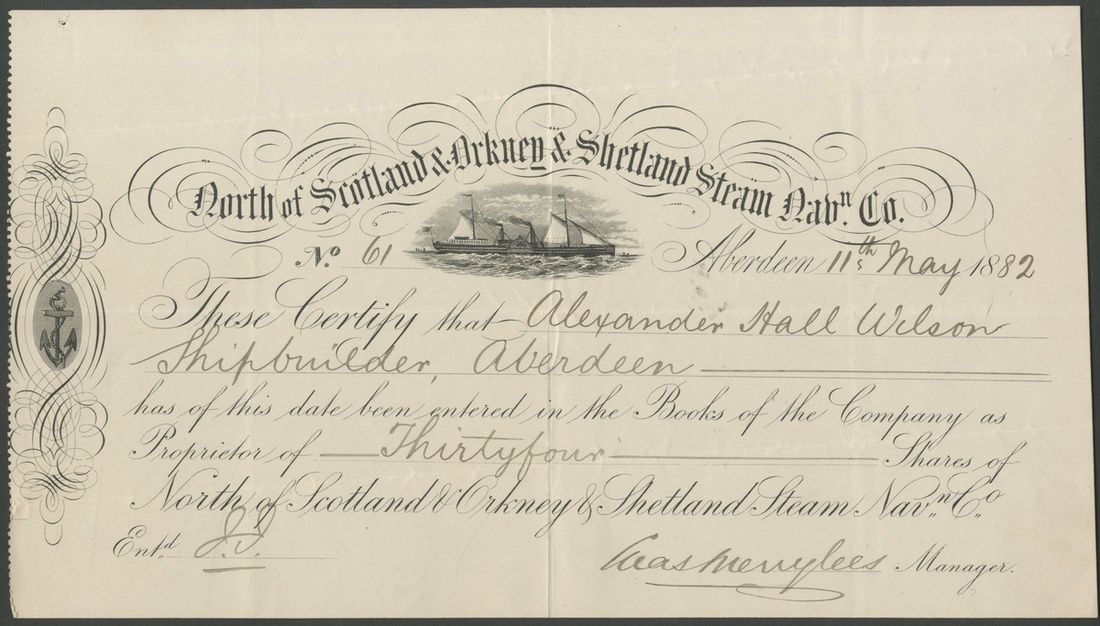 North of Scotland & Orkney & Shetland Steam Navn. Co.
No. 61 Aberdeen 11th May 1882
These Certify that Alexander Hall Wilson
Shipbuilder, Aberdeen
has of this date been entered in the Books of the Company as
Proprietor of Thirtyfour Shares of
North of Scotland & Orkney & Shetland Steam Navn. Co.
Entd. Merrylees Manager.